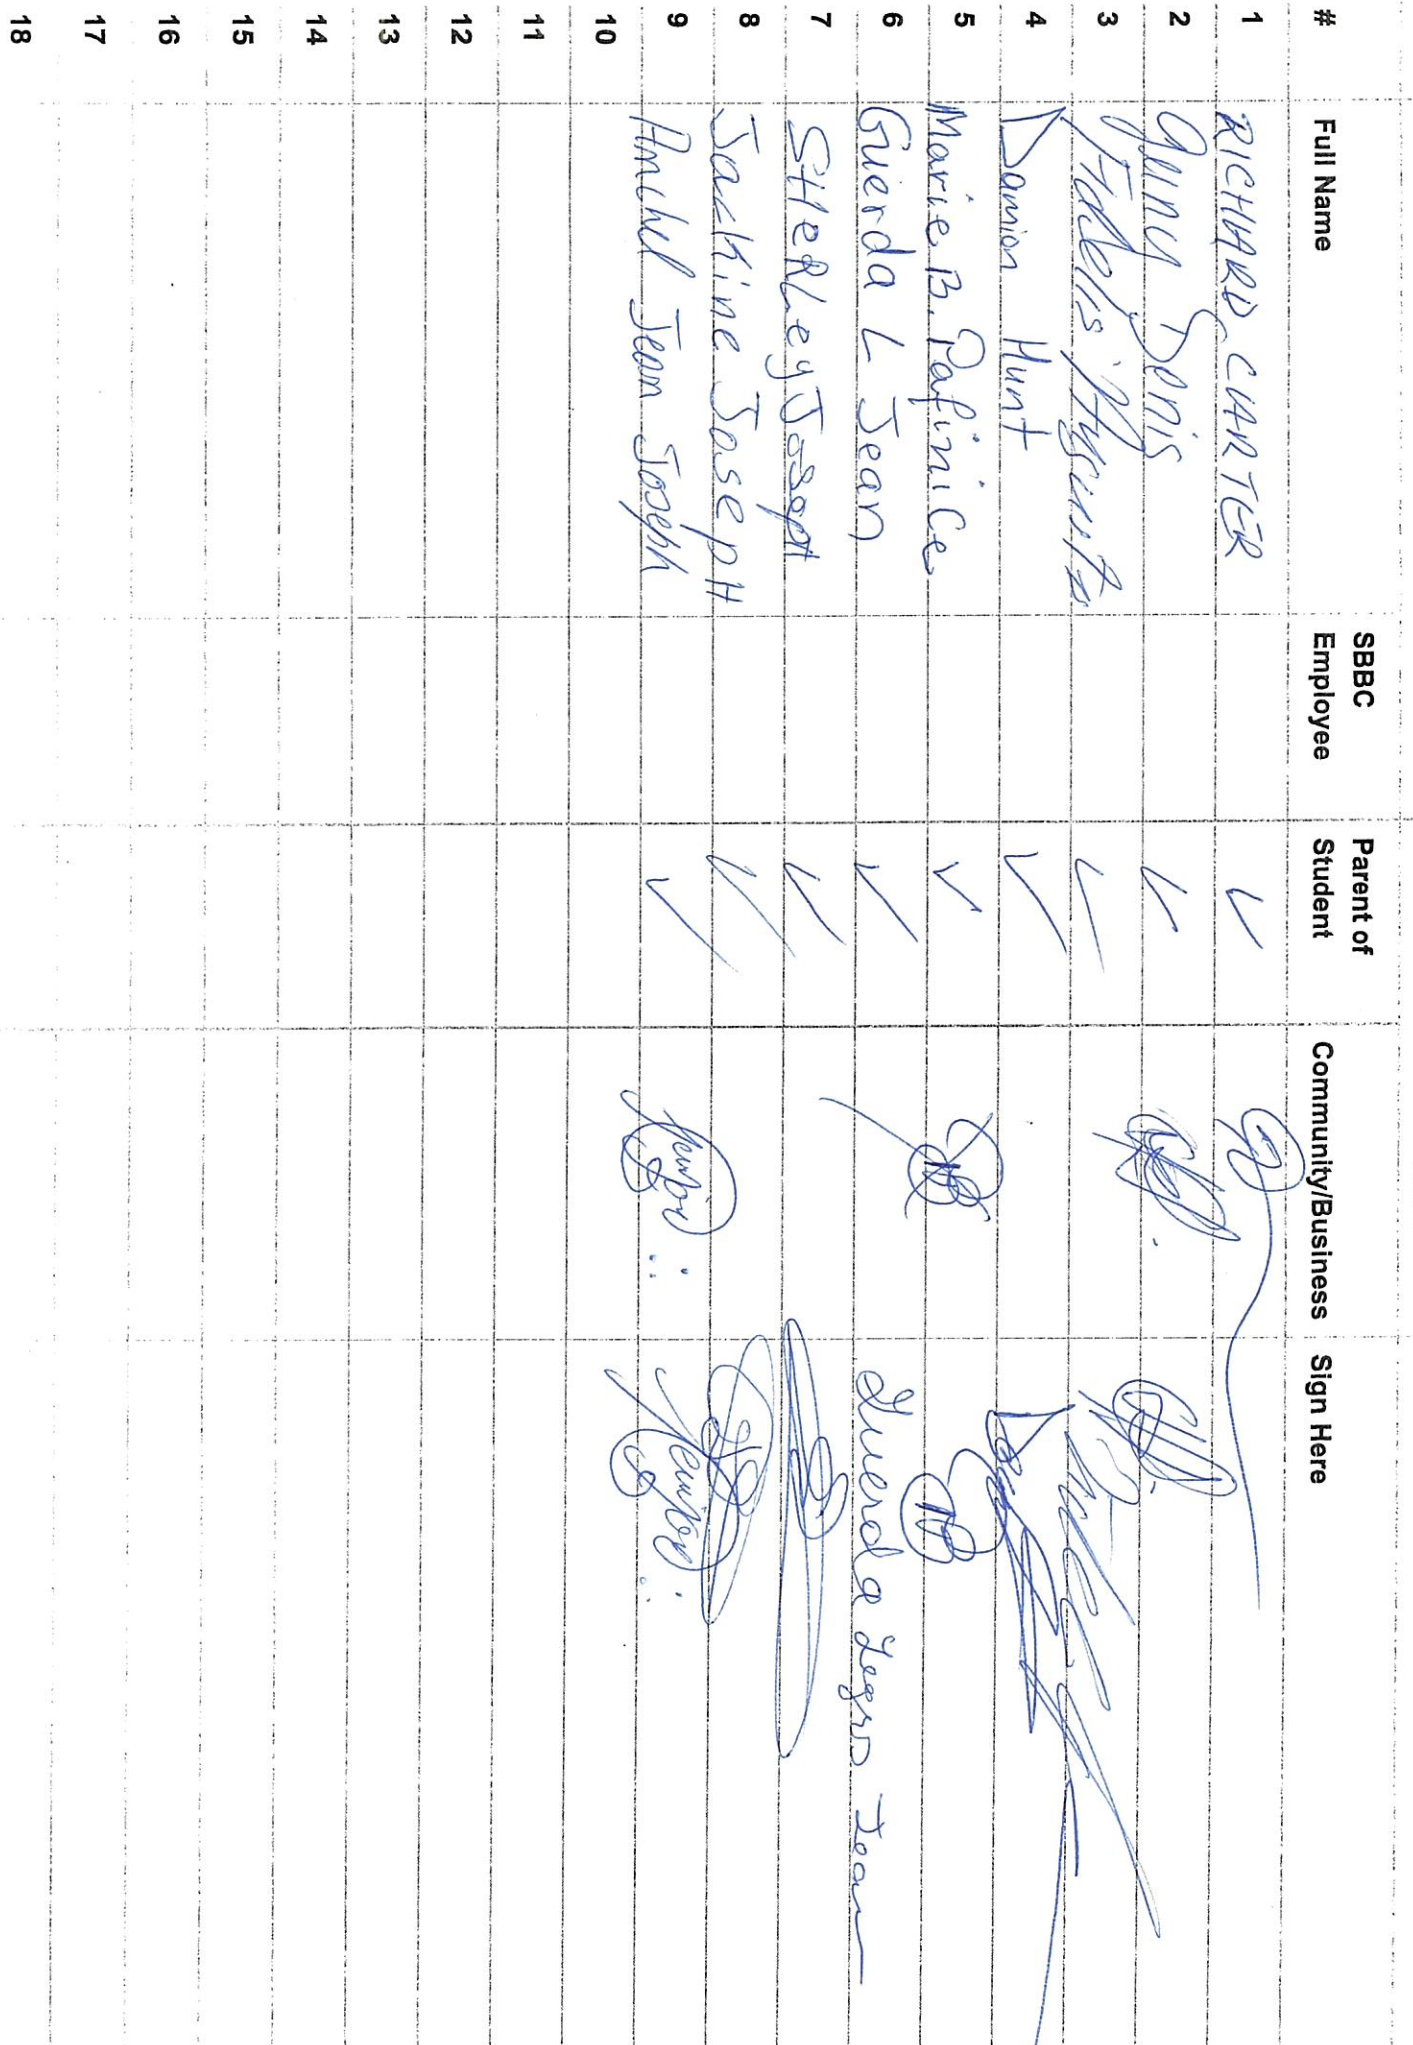 # Full Name SBBC Employee Parent of Student Community/Business Sign Here
1 RICHARD CARTER ✓
2 Denis ✓
3 Fidelis ✓
4 Damion Hunt ✓
5 Marie B. Pafinice ✓
6 Guierda L Jean ✓ Guerda Legros Jean
7 STHERLey Josept ✓
8 Jackine JosepH ✓
9 Jean Joseph ✓
10
11
12
13
14
15
16
17
18